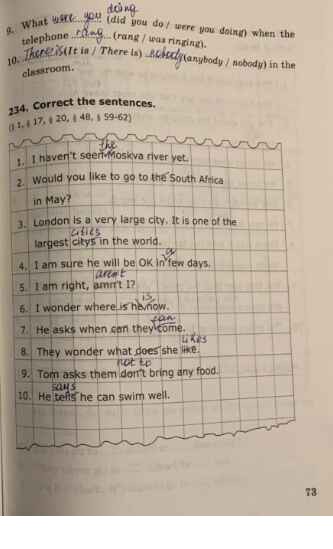 doing
9. What were you (did you do / were you doing) when the
telephone rang (rang / was ringing).
10. There is (It is / There is) nobody (anybody / nobody) in the
classroom.
234. Correct the sentences.
(§ 1, § 17, § 20, § 48, § 59-62)
the
1. I haven't seen Moskva river yet.
2. Would you like to go to the South Africa
in May?
3. London is a very large city. It is one of the
cities
largest citys in the world.
a
4. I am sure he will be OK in few days.
aren't
5. I am right, amn't I?
is
6. I wonder where is he now.
can
7. He asks when can they come.
likes
8. They wonder what does she like.
not to
9. Tom asks them don't bring any food.
says
10. He tells he can swim well.
73